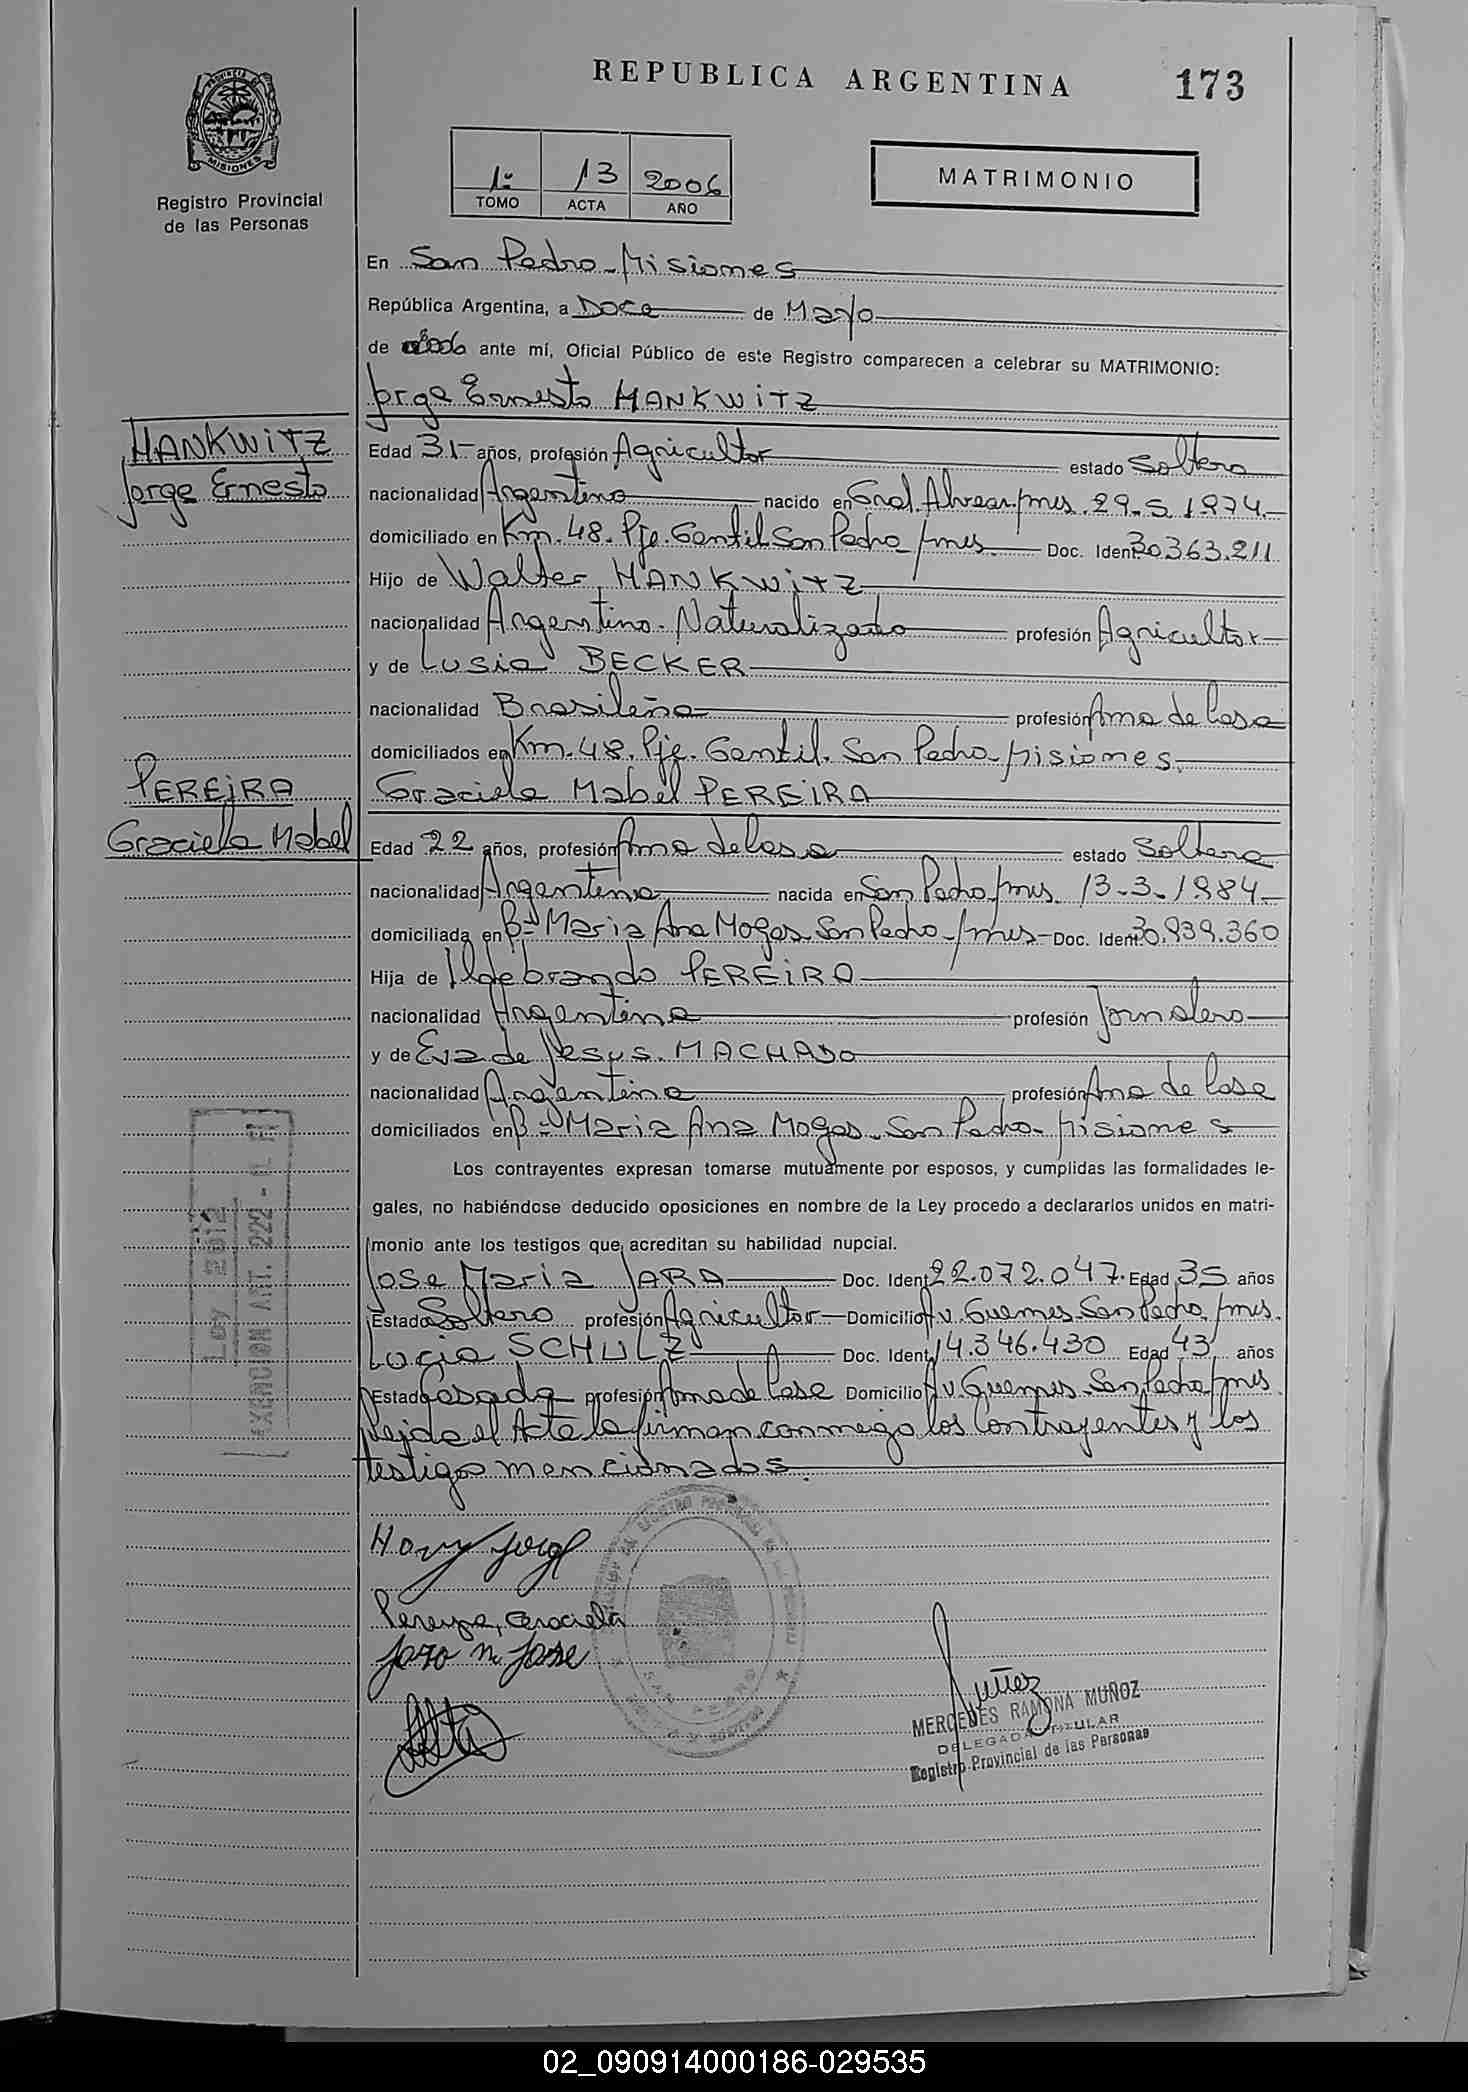 REPUBLICA ARGENTINA 173
PROVINCIA DE
MISIONES
Registro Provincial
de las Personas
1º 13 2006
TOMO ACTA AÑO
MATRIMONIO
En San Pedro - Misiones
República Argentina, a Doce de Mayo
de 2006 ante mí, Oficial Público de este Registro comparecen a celebrar su MATRIMONIO:
Jorge Ernesto HANKWITZ
HANKWITZ
Jorge Ernesto
Edad 31- años, profesión Agricultor estado Soltero
nacionalidad Argentino nacido en Gral. Alvear. Mnes. 29.5.1974.-
domiciliado en Km. 48. Pje. Gentil. San Pedro - Mnes. Doc. Ident. 30.363.211
Hijo de Walter HANKWITZ
nacionalidad Argentino. Naturalizado profesión Agricultor
y de Lusia BECKER
nacionalidad Brasileña profesión Ama de Casa
domiciliados en Km. 48. Pje. Gentil. San Pedro - Misiones.
PEREIRA
Graciela Mabel
Graciela Mabel PEREIRA
Edad 22 años, profesión Ama de Casa estado Soltera
nacionalidad Argentina nacida en San Pedro - Mnes. 13-3-1984.-
domiciliada en Bº Maria Ana Mogas. San Pedro - Mnes - Doc. Ident. 30.939.360
Hija de Ildebrando PEREIRA
nacionalidad Argentina profesión Jornalero
y de Eva de Jesus. MACHADO
nacionalidad Argentina profesión Ama de Casa
domiciliados en Bº Maria Ana Mogas. San Pedro - Misiones
Los contrayentes expresan tomarse mutuamente por esposos, y cumplidas las formalidades le-
gales, no habiéndose deducido oposiciones en nombre de la Ley procedo a declararlos unidos en matri-
monio ante los testigos que acreditan su habilidad nupcial.
Jose Maria JARA Doc. Ident. 22.072.047. Edad 35 años
Estado Soltero profesión Agricultor - Domicilio Av. Guemes. San Pedro. Mnes.
Lucia SCHULZ Doc. Ident. 14.346.430 Edad 43 años
Estado Casada profesión Ama de Casa Domicilio Av. Guemes. San Pedro. Mnes.
Leida el Acta la firman conmigo los Contrayentes y los
testigos mencionados.
Ley 2812
EXENCION ART. 222 -
Jorge
Pereyra, Graciela
Jara M. Jose
MERCEDES RAMONA MUÑOZ
DELEGADA TITULAR
Registro Provincial de las Personas
02_090914000186-029535